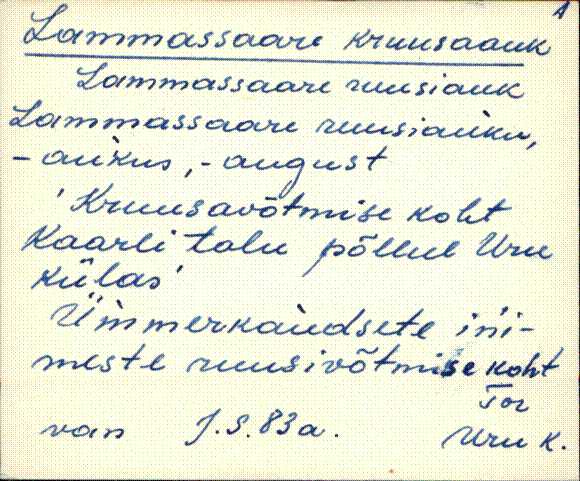 A
Lammassaare kruusaauk
Lammassaare ruusiauk
Lammassaare ruusiaùku,
- aùkus, - august
'Kruusavõtmise koht
Kaarli talu põllul Uru
külas'
Ümmerkaùdsete in'i-
meste ruusivõtmise koht
Tor
van J.S. 83 a. Uru k.